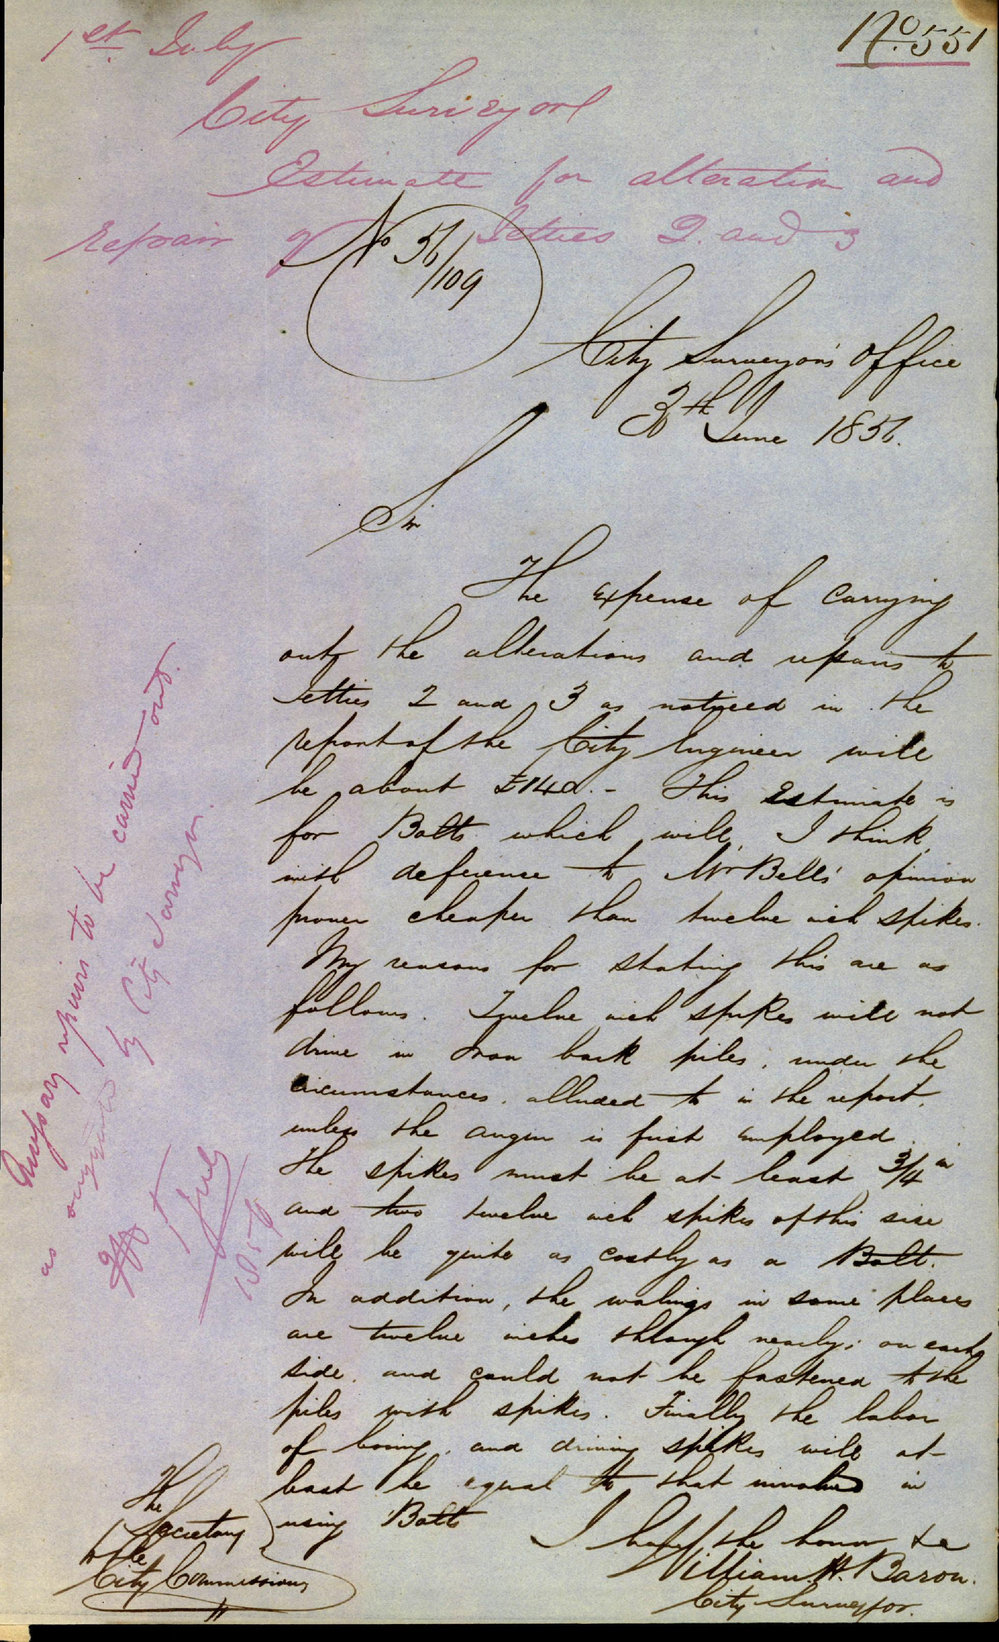 No. 551
1st. July
City Surveyor
Estimate for alteration and
repair of Jetties 2. and 3
No 56/109
City Surveyor's Office
30th June 1856.
Sir
The expense of carrying
out the alterations and repairs to
Jetties 2 and 3 as noticed in the
report of the City Engineer will
be about £140.- This Estimate is
for Bolts which will, I think,
with deference to Mr Bell's opinion
prove cheaper than twelve inch spikes.
My reasons for stating this are as
follows. Twelve inch spikes will not
drive in Iron bark piles, under the
circumstances alluded to in the report,
unless the auger is first employed.
The spikes must be at least 3/4 in
and two twelve inch spikes of this size
will be quite as costly as a Bolt.
In addition, the walings in some places
are twelve inches through nearly; on each
side, and could not be fastened to the
piles with spikes. Finally the labor
of boring, and driving spikes will at
least be equal to that involved in
using Bolts
I have the honor &c
William H. Baron.
City Surveyor.
The
Secretary
to the
City Commissioners
Necessary repairs to be carried out
as suggested by City Surveyor.
1st July
1856